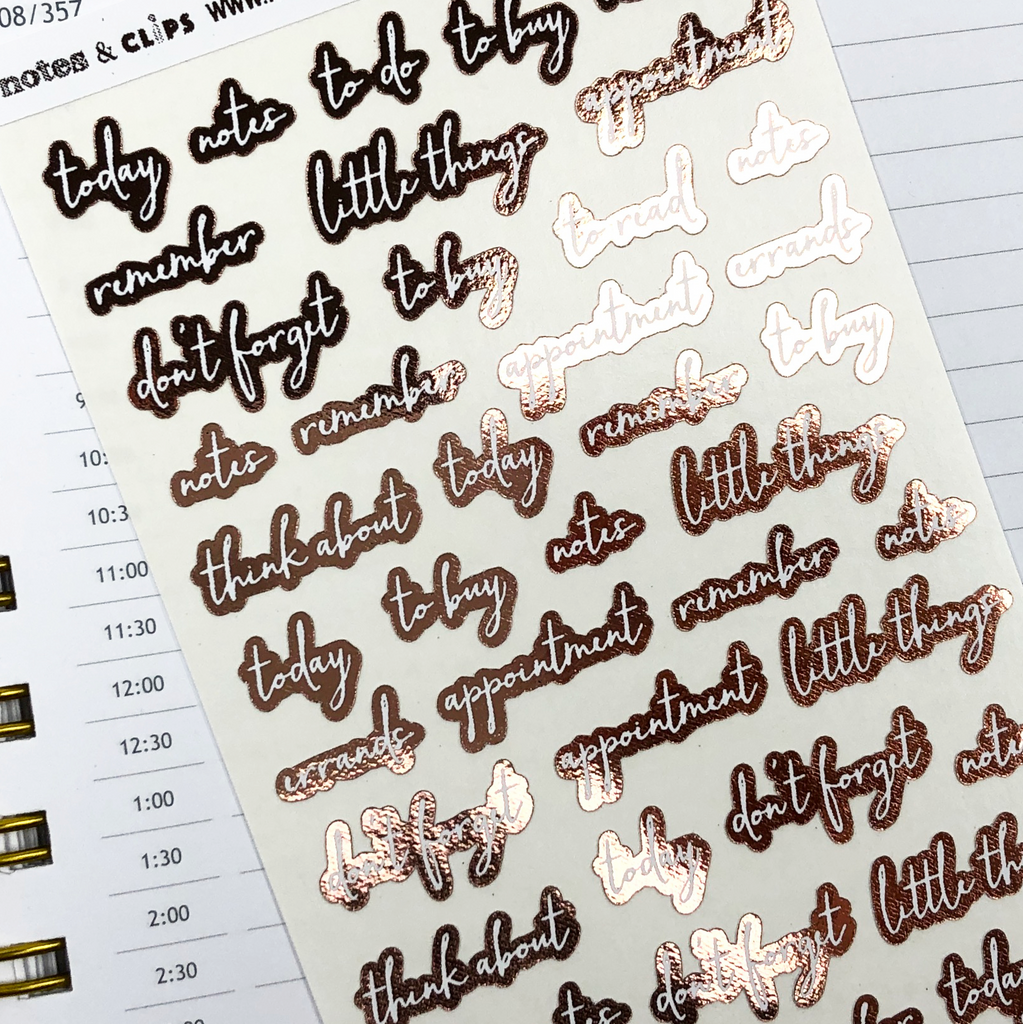 08/357
notes & CLiPS WWW.
to buy
to do
notes
today
appointment
little things
notes
remember
to read
errands
to buy
don't forget
appointment
to buy
remember
remember
notes
today
little things
think about
notes
notes
to buy
remember
today
appointment
little things
errands
appointment
don't forget
notes
don't forget
today
little th
think about
don't forget
today
notes
10:
10:3
11:00
11:30
12:00
12:30
1:00
1:30
2:00
2:30